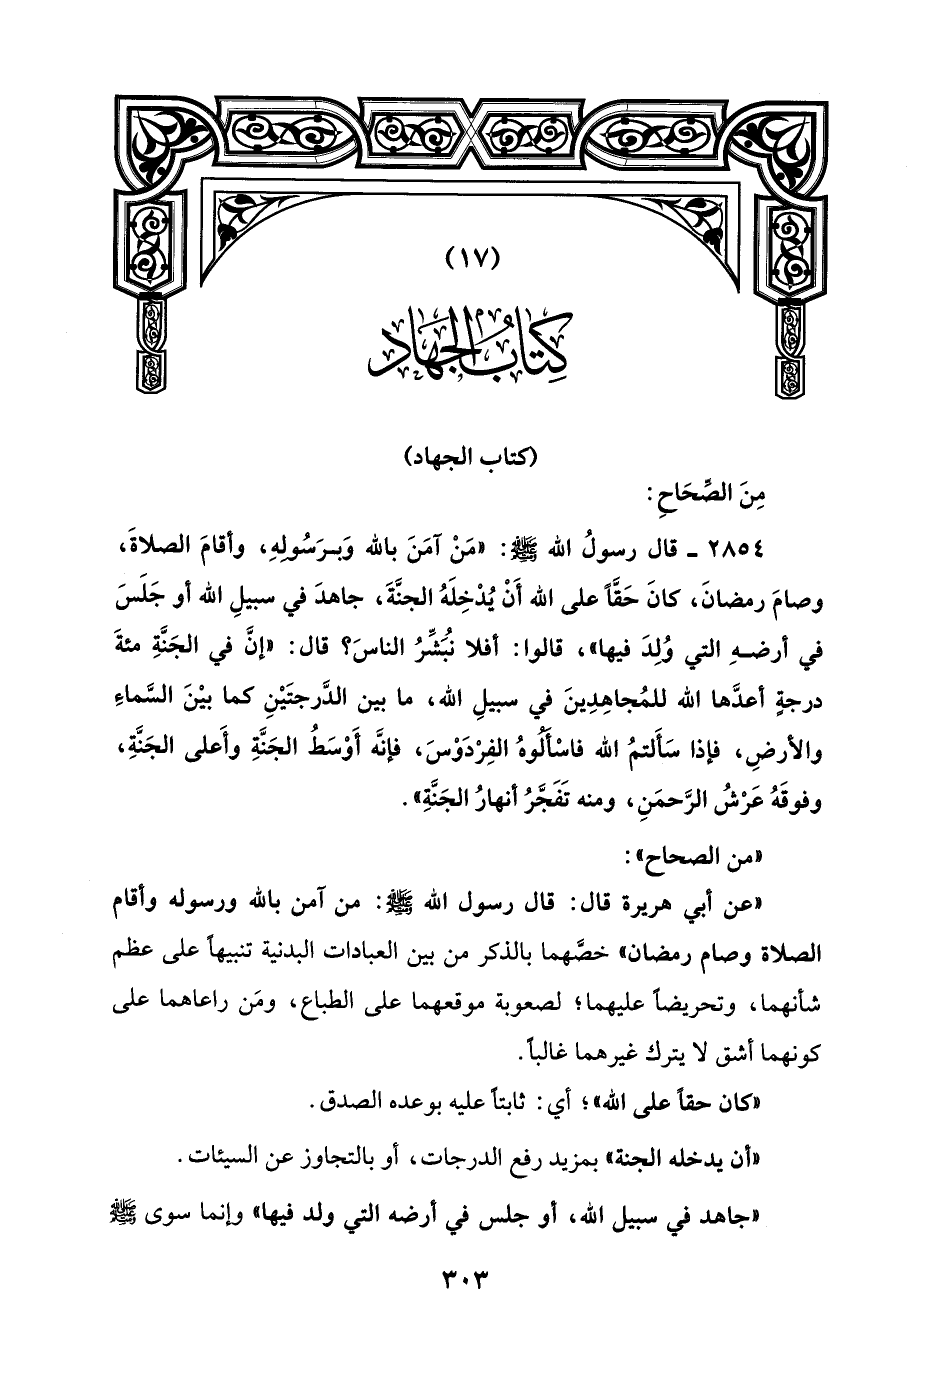 (١٧)
كِتَابُ الْجِهَادِ
(كتاب الجهاد)
مِنَ الصِّحَاحِ:
٢٨٥٤ ـ قال رسولُ الله ﷺ: «مَنْ آمَنَ بالله وَبـرَسُولِهِ، وأقامَ الصلاةَ،
وصامَ رمضانَ، كانَ حَقَّاً على الله أَنْ يُدْخِلَهُ الجنَّةَ، جاهدَ في سبيلِ الله أو جَلَسَ
في أرضـهِ التي وُلِدَ فيها»، قالوا: أفلا نُبَشِّرُ الناسَ؟ قال: «إنَّ في الجَنَّةِ مئةَ
درجةٍ أعدَّها الله للمُجاهِدِينَ في سبيلِ الله، ما بين الدَّرجتَيْنِ كما بيْنَ السَّماءِ
والأرضِ، فإذا سَأَلتمُ الله فاسْأَلُوهُ الفِرْدَوْسَ، فإنَّه أَوْسَطُ الجَنَّةِ وأَعلى الجَنَّةِ،
وفوقَهُ عَرْشُ الرَّحمَنِ، ومنه تَفَجَّرُ أنهارُ الجَنَّةِ».
«من الصحاح»:
«عن أبي هريرة قال: قال رسول الله ﷺ: من آمن بالله ورسوله وأقام
الصلاة وصام رمضان» خصَّهما بالذكر من بين العبادات البدنية تنبيهاً على عظم
شأنهما، وتحريضاً عليهما؛ لصعوبة موقعهما على الطباع، ومَن راعاهما على
كونهما أشق لا يترك غيرهما غالباً.
«كان حقاً على الله»؛ أي: ثابتاً عليه بوعده الصدق.
«أن يدخله الجنة» بمزيد رفع الدرجات، أو بالتجاوز عن السيئات.
«جاهد في سبيل الله، أو جلس في أرضه التي ولد فيها» وإنما سوى ﷺ
٣٠٣